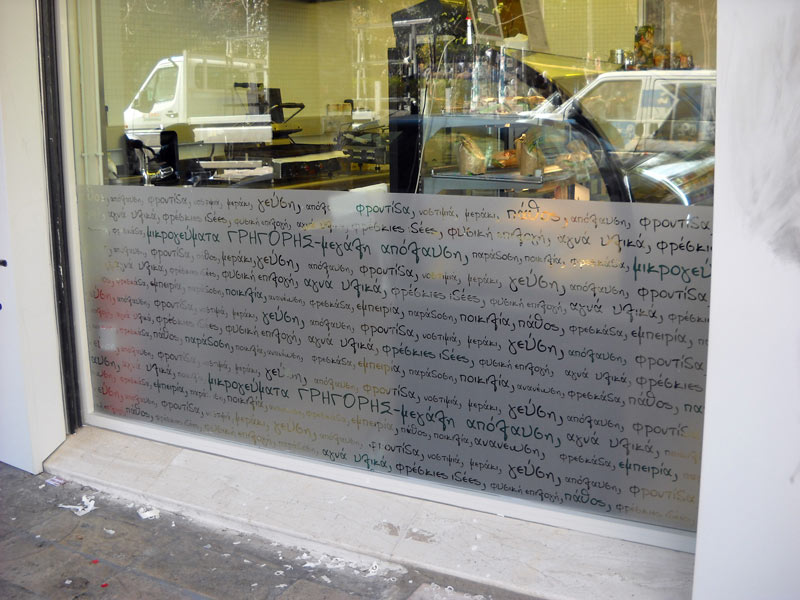 απόλαυση, φροντίδα, νοστιμιά, μεράκι, γεύση, φροντίδα, νοστιμιά, μεράκι, πάθος, απόλαυση, φροντίδα
αγνά υλικά, φρέσκιες ιδέες, φυσική επιλογή, φρέσκιες ιδέες, φυσική επιλογή, αγνά υλικά, φρέσκιες
φρεσκάδα, μικρογεύματα ΓΡΗΓΟΡΗΣ-μεγάλη απόλαυση, παράδοση, ποικιλία, φρεσκάδα, μικρογεύ
απόλαυση, φροντίδα, πάθος, μεράκι, γεύση, απόλαυση, φροντίδα, νοστιμιά, μεράκι, γεύση, απόλαυση, φροντίδα
αγνά υλικά, φρέσκιες ιδέες, φυσική επιλογή, αγνά υλικά, φρέσκιες ιδέες, φυσική επιλογή, αγνά υλικά, φρέσκιες
φρεσκάδα, εμπειρία, παράδοση, ποικιλία, ανανέωση, φρεσκάδα, εμπειρία, παράδοση, ποικιλία, πάθος, φρεσκάδα, εμπειρία, πα
γεύση, απόλαυση, φροντίδα, νοστιμιά, μεράκι, γεύση, απόλαυση, φροντίδα, νοστιμιά, μεράκι, γεύση, απόλαυση, φροντίδα
υλικά, φρέσκιες ιδέες, φυσική επιλογή, αγνά υλικά, φρέσκιες ιδέες, φυσική επιλογή, αγνά υλικά, φρέσκιες
φρεσκάδα, πάθος, παράδοση, ποικιλία, ανανέωση, φρεσκάδα, εμπειρία, παράδοση, ποικιλία, ανανέωση, φρεσκάδα, πάθος, πα
αυση, φροντίδα, νοστιμιά, μεράκι, γεύση, απόλαυση, φροντίδα, νοστιμιά, μεράκι, γεύση, απόλαυση, φροντίδα
αγνά υλικά, μικρογεύματα ΓΡΗΓΟΡΗΣ-μεγάλη απόλαυση, αγνά υλικά,
φρεσκάδα, εμπειρία, ποικιλία, φρεσκάδα, εμπειρία, πάθος, ποικιλία, ανανέωση, φρεσκάδα, εμπειρία,
γεύση, απόλαυση, φροντίδα, νοστιμιά, μεράκι, γεύση, απόλαυση, φροντίδα, νοστιμιά, μεράκι, γεύση, απόλαυση, φροντίδα
πάθος, φρέσκιες ιδέες, φυσική επιλογή, παράδοση, αγνά υλικά, φρέσκιες ιδέες, φυσική επιλογή, πάθος, φρέσκιες ιδέες